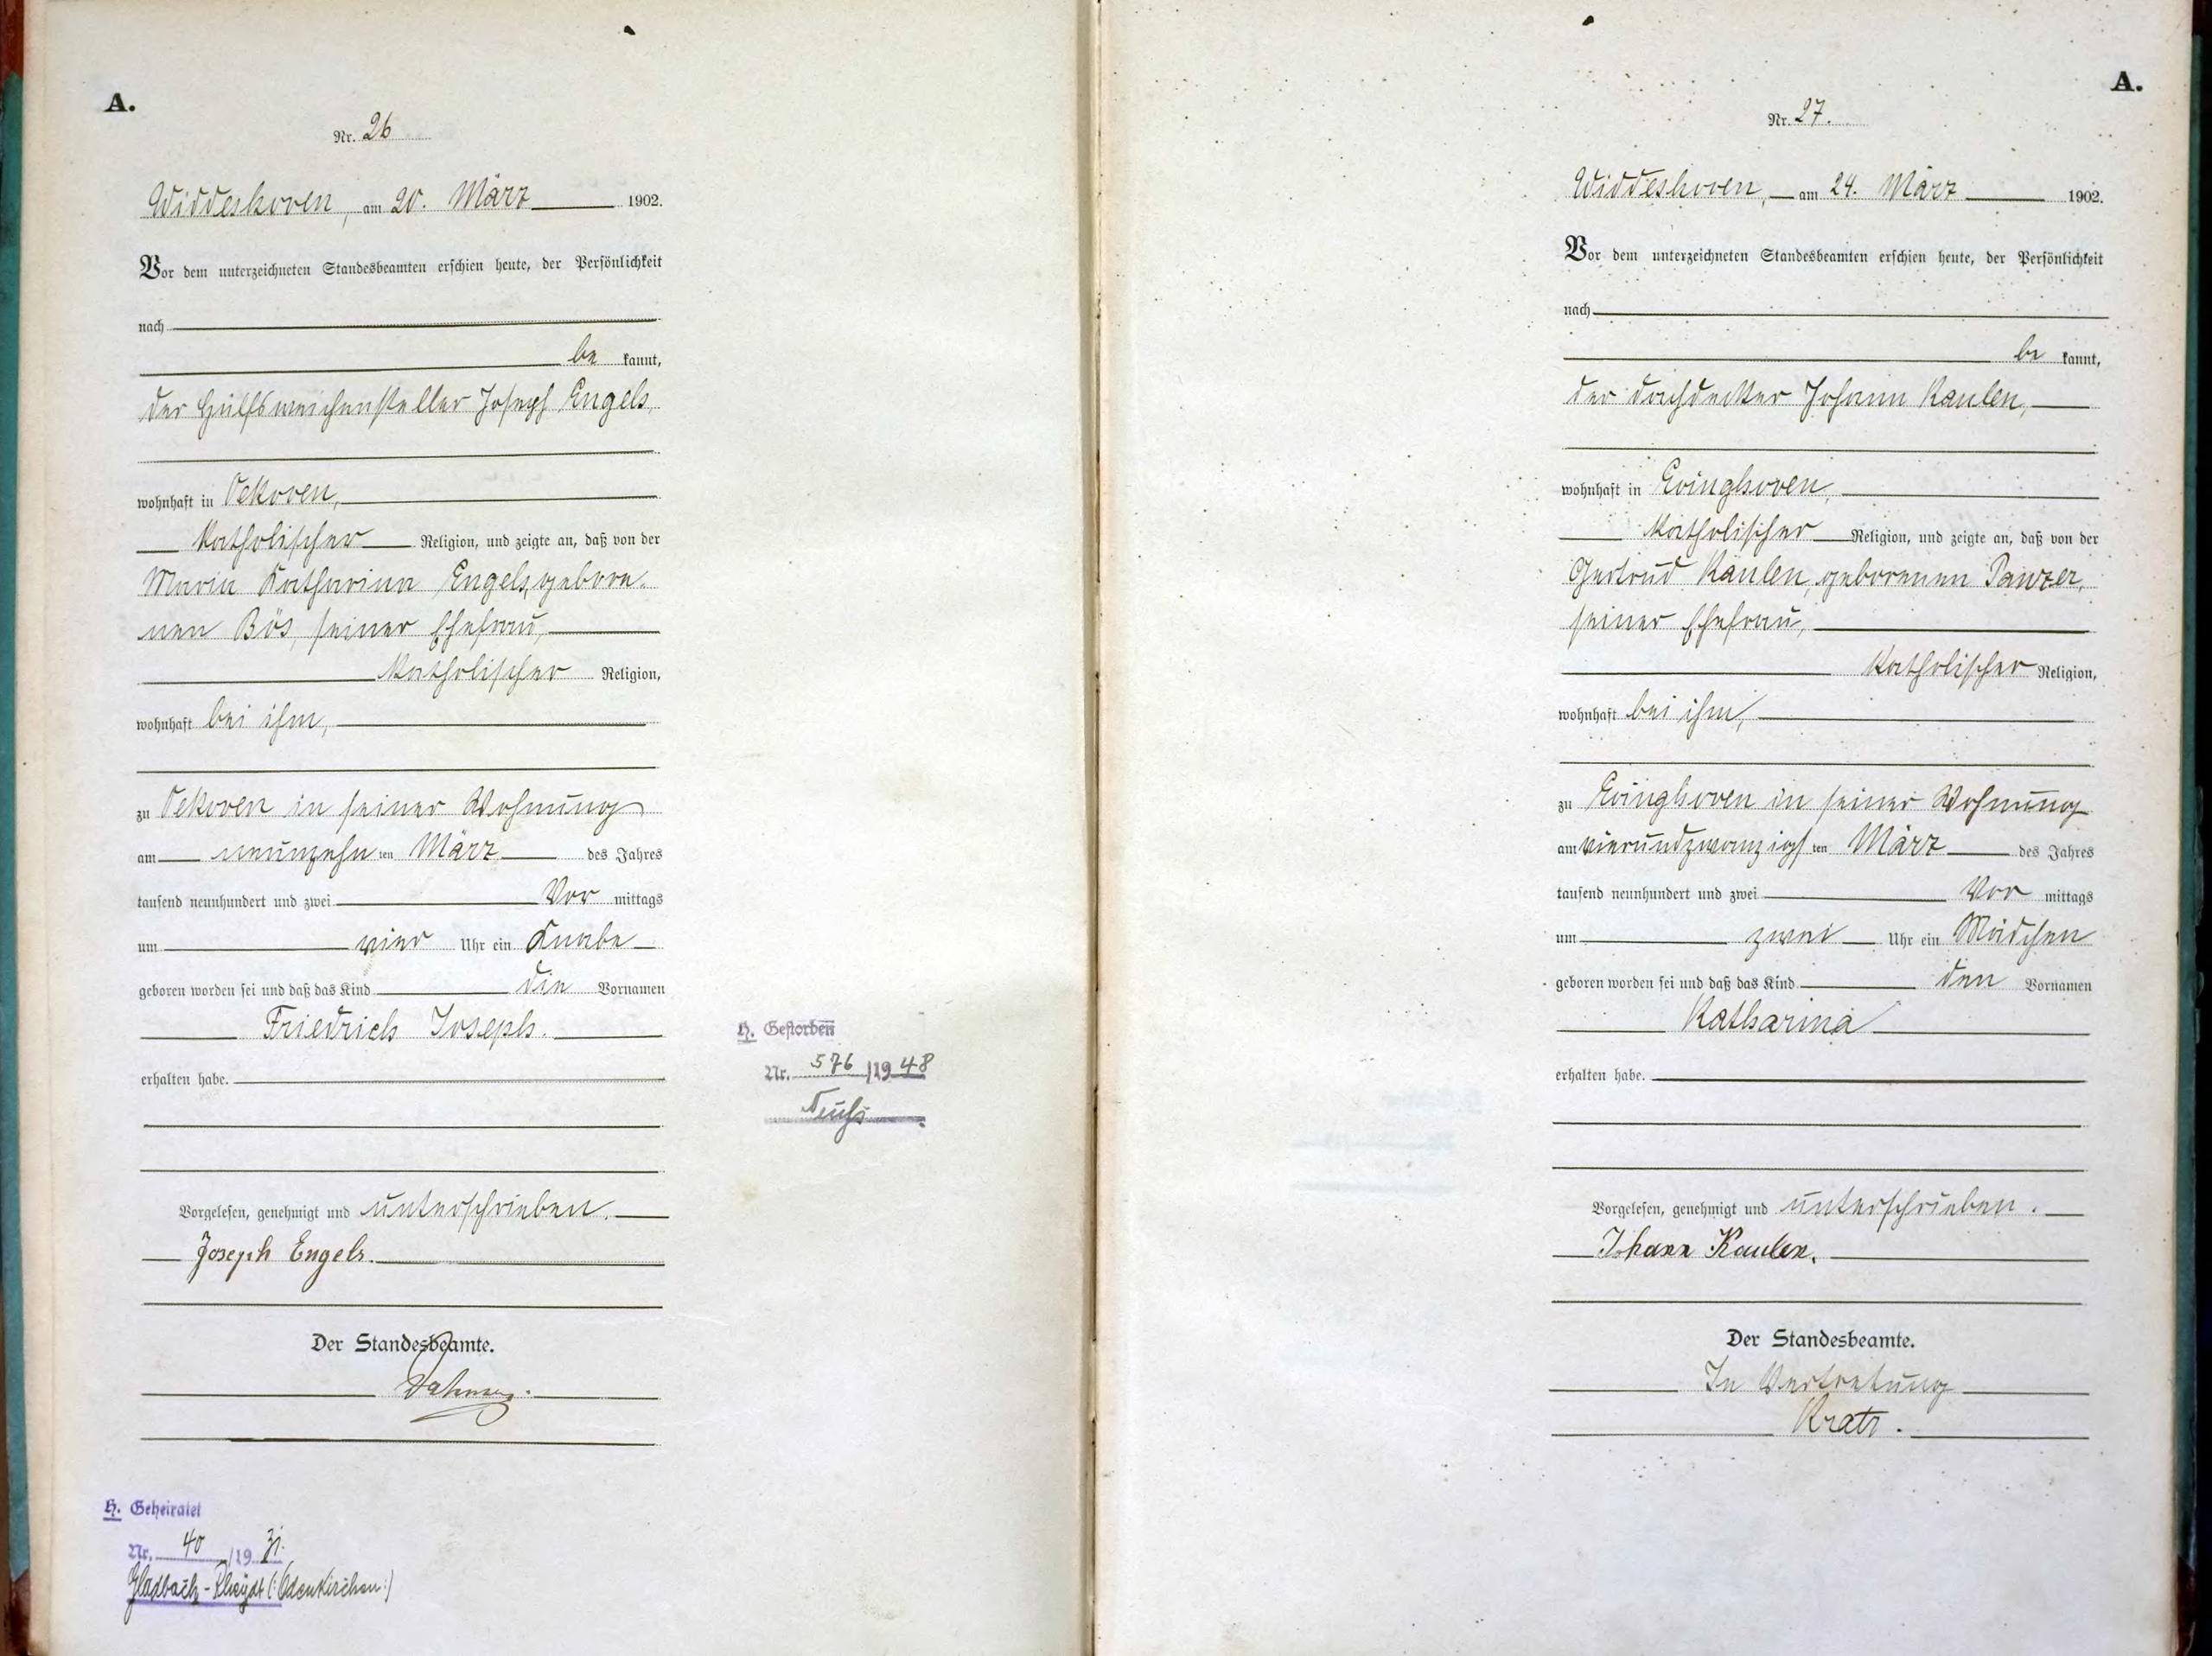 A.
Nr. 26
Widdeshoven, am 20. März 1902.
Vor dem unterzeichneten Standesbeamten erschien heute, der Persönlichkeit
nach
be kannt,
der Hülfsweichensteller Joseph Engels,
wohnhaft in Oekoven,
katholischer Religion, und zeigte an, daß von der
Maria Katharina Engels, gebore-
nen Bös, seiner Ehefrau,
katholischer Religion,
wohnhaft bei ihm,
zu Oekoven in seiner Wohnung
am neunzehn ten März des Jahres
tausend neunhundert und zwei Vor mittags
um vier Uhr ein Knabe
geboren worden sei und daß das Kind die Vornamen
Friedrich Joseph.
erhalten habe.
Vorgelesen, genehmigt und unterschrieben.
Joseph Engels.
Der Standesbeamte.
H. Geheiratet
Nr. 40 /19 31.
Gladbach-Rheydt (:Odenkirchen:)
H. Gestorben
Nr. 576 /19 48
Neuß
A.
Nr. 27.
Widdeshoven, am 24. März 1902.
Vor dem unterzeichneten Standesbeamten erschien heute, der Persönlichkeit
nach
be kannt,
der Dachdecker Johann Kaulen,
wohnhaft in Evinghoven,
katholischer Religion, und zeigte an, daß von der
Gertrud Kaulen, geborenen Panzer,
seiner Ehefrau,
katholischer Religion,
wohnhaft bei ihm,
zu Evinghoven in seiner Wohnung
am vierundzwanzigs ten März des Jahres
tausend neunhundert und zwei Vor mittags
um zwei Uhr ein Mädchen
geboren worden sei und daß das Kind den Vornamen
Katharina
erhalten habe.
Vorgelesen, genehmigt und unterschrieben.
Johann Kaulen.
Der Standesbeamte.
In Vertretung
Kratz.